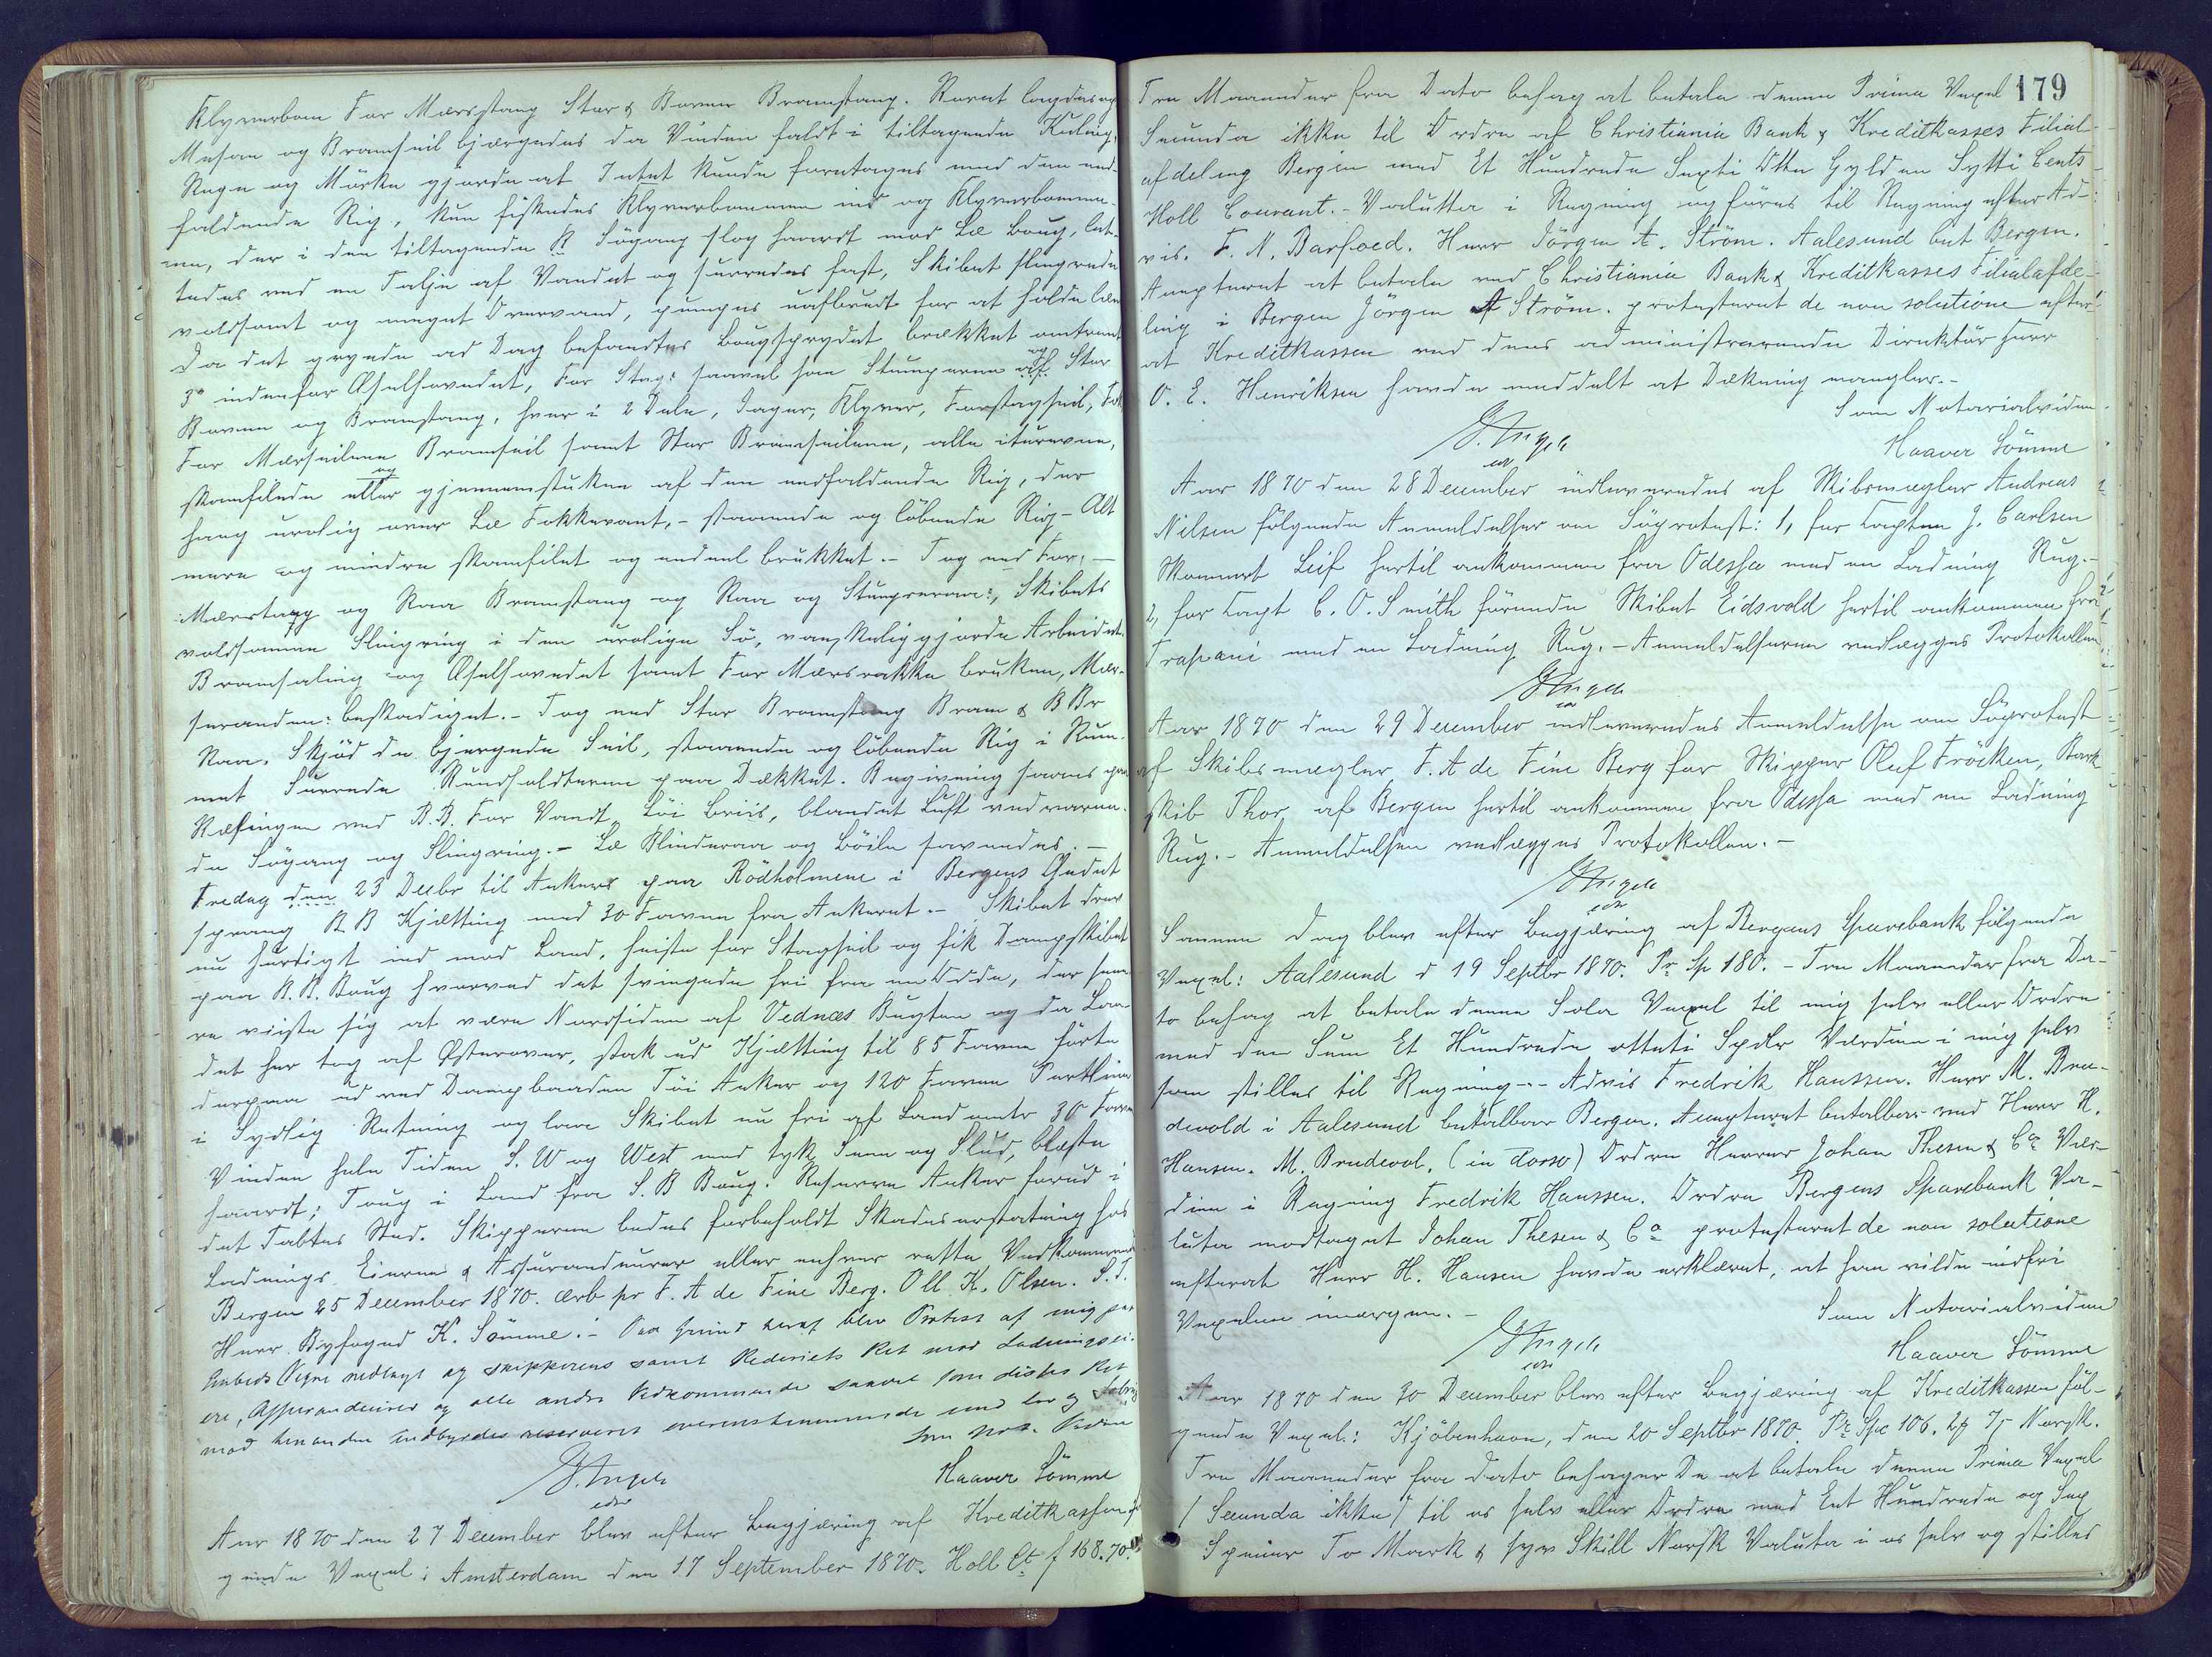 Klyverbom For Mærsstang Stor & Boven Bramstang. Roret lagdes op
Mesan og Bramseil bjærgedes da Vinden faldt i tiltagende Kuling,
Regn og Mörke gjorde at Intet kunde foretages med den ned-
faldende Rig, kun fiskedes Klyverbommen ind og Klyverbommen-
nen, der i den tiltagende R Sögang slog haardt mod Læ Boug, let-
tedes ved en Talje af Vandet og surredes fast, Skibet slingrede
voldsomt og meget Overvand, pumpes uafbrudt for at holde læns
Da det gryede ad Dag befandtes Bougsprydet brækket omtrent
3° indenfor Æselhovedet, For Stag: saavel som Stumperne af Stor
Boven og Bramstang, hver i 2 Dele, Jager, Klyver, Forstagseil, Fok
For Mærseilene Bramseil samt Stor Bramseilene, alle itureven,
skamfilede eller og gjennemstukne af den nedfaldende Rig, der
hang urolig over Læ Fokkevant, - staaende og löbende Rig - Alt
mere og mindre skamfilet og endeel brukket. - Tog ned For, -
Mærstang og Raa Bramstang og Raa og Stumperne:, Skibets
voldsomme Slingring i den urolige Sö, vanskeliggjorde Arbeidet.
Bramsaling og Æselhovedet samt For Mærsrakke brukken, Mær-
seranden: beskadiget. - Tog ned Stor Bramstang Bram & B Br
Raa. Skjöd de bjergede Seil, staaende og löbende Rig i Rum-
met Surrede Rundholdterne paa Dækket. Begivning saaes paa
Ræligen ved B.B. For Vandt. Löi Briis, blandet Luft vedvaren-
de Sögang og Slingring. - Læ Blinderaa og Böile savnedes. -
Fredag den 23 Decbr til Ankers paa Rödholmene i Bergens Gabet
sprang B B Kjætting med 30 Favne fra Ankeret. - Skibet drev
nu hurtigt ind mod Land, heiste for Stagseil og fik Dampskibet
paa B.B. Boug hvorved det svingede fri fra en Odde, der sene-
re viiste sig at være Nordsiden af Vednæs Bugten og da Lan-
det her tog af Österover, stak ud Kjætting til 85 Favne förte
derpaa ud ved Dampbaaden Töi Anker og 120 Favne Pertline
i Sydlig Retning og laae Skibet nu fri af Land omtr 30 Favne
Vinden hele Tiden S.W og West med tyk Sne og Slud, blæste
haardt; Toug i Land fra S.B Boug. Reserve Anker forud i
det Tabtes Sted. Skipperen bedes forbeholdt Skadeserstatning hos
Ladnings Eierne & Assurandeurer eller enhver rette Vedkommende
Bergen 25 December 1870. ærb pr F. A de Fine Berg. Oll. K. Olsen. S.T.
Herr Byfoged K. Sömme: - Paa Grund heraf blev Protest af mig paa
Embeds Vegne nedlagt og skipperens samt Rederiets Ret mod Ladningsei-
ere, Assurandeurer og alle andre Vedkommende saavel som disses Ret
mod hinanden indbyrdes reserveret overensstemmende med Lov og Sædvane
Som Not. Vidne
Haaver Sömme
Aar 1870 den 27 December blev efter Begjæring af Kreditkassen föl-
gende Vexel: Amsterdam den 17 September 1870. Holl Ct f 168.70.
179
Tre Maaneder fra Dato behag at betale denne Prima Vexel
Secunda ikke til Ordre af Christiania Bank & Kreditkasses Filial-
afdeling Bergen med Et Hundrede Sexti Otte Gylden Sytti Cents
Holl Courant. - Valutta i Regning og föres til Regning efter Ad-
vis. F. N. Barfoed. Herr Jörgen A. Ström. Aalesund bet Bergen.
Accepteret at betale ved Christiania Bank & Kreditkasses Filialafde-
ling i Bergen Jörgen A Ström. protesteret de non solutione efter-
at Kreditkassen ved dens administrerende Direktör Herr
O. E. Henriksen havde meddelt at Dækning mangler. -
Som Notarialvidne
Haaver Sömme
Aar 1870 den 28 December indleveredes af Skibsmægler Andreas
Nilsen fölgende Anmeldelser om Söprotest: 1, for Captein J. Carlsen
Skonnert Leif hertil ankommen fra Odessa med en Ladning Rug. -
2, for Capt C. O. Smith förende Skibet Eidsvold hertil ankommen fra
Trapani med en Ladning Rug. - Anmeldelserne vedlægges Protokollen
Aar 1870 den 29 December indleveredes Anmeldelse om Söprotest
af Skibsmægler F. A de Fine Berg for Skipper Oluf Fröcken, Bark
skib Thor af Bergen hertil ankommen fra Odessa med en Ladning
Rug. - Anmeldelsen vedlægges Protokollen. -
Samme Dag blev efter Begjæring af Bergens Sparebank fölgende
Vexel: Aalesund d 19 Septbr 1870. Pr Sp 180. - Tre Maaneder fra Da-
to behag at betale denne Sola Vexel til mig selv eller Ordre
med den Sum Et Hundrede otteti Spdlr Værdien i mig selv
som stilles til Regning - - Advis Fredrik Hanssen. Herr M. Bru-
devold i Aalesund betalbar Bergen. Accepteret betalbar ved Herr H.
Hansen. M. Brudevol. (in dorso) Ordre Herrer Johan Thesen & Co Vær-
dien i Regning Fredrik Hanssen. Ordre Bergens Sparebank Va-
luta modtaget Johan Thesen & Co protesteret de non solutione
efterat Herr H. Hansen havde erklæret, at han vilde indfri
Vexelen imorgen. -
Som Notarialvidne
Haaver Sömme
Aar 1870 den 30 December blev efter Begjæring af Kreditkassen föl-
gende Vexel: Kjöbenhavn, den 20 Septbr 1870. Pr Spc 106. 2 7 Norsk.
Tre Maaneder fra Dato behager De at betale denne Prima Vexel
/ Secunda ikke / til os selv eller Ordre med Eet Hundrede og Sex
Specier To Mark & syv Skill Norsk Valuta i os selv og stilles